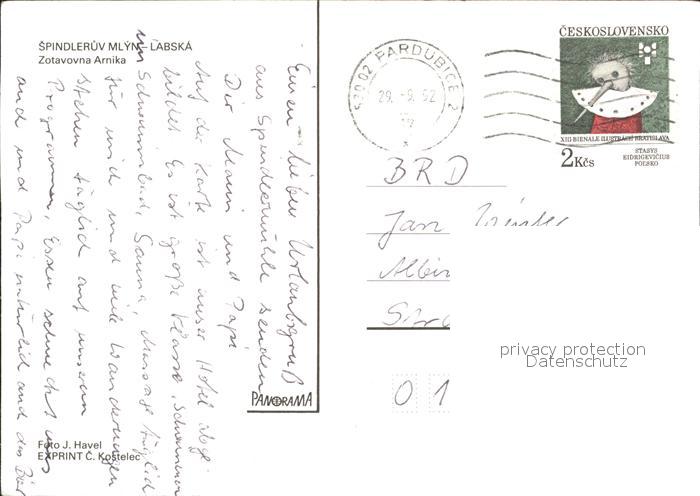 ŠPINDLERŮV MLÝN – LABSKÁ
Zotavovna Arnika
Einen lieben Urlaubsgruß
aus Spindlermühle senden
Dir Mami und Papi
Auf der Karte ist unser Hotel abge-
bildet. Es ist große Klasse, Schwimmen
im Schwimmbad, Sauna, Massage täglich
für mich und viele Wanderungen
stehen täglich auf unserem
Programm. Essen schmeckt uns
und und Papi natürlich auch das Bier
Foto J. Havel
EXPRINT Č. Kostelec
PANORAMA
530 02 PARDUBICE 2
29. -9. 92
ČESKOSLOVENSKO
XIII BIENALE ILUSTRÁCIÍ BRATISLAVA
2 Kčs
STASYS
EIDRIGEVIČIUS
POĽSKO
BRD
Jan
Albin
0 1
privacy protection
Datenschutz